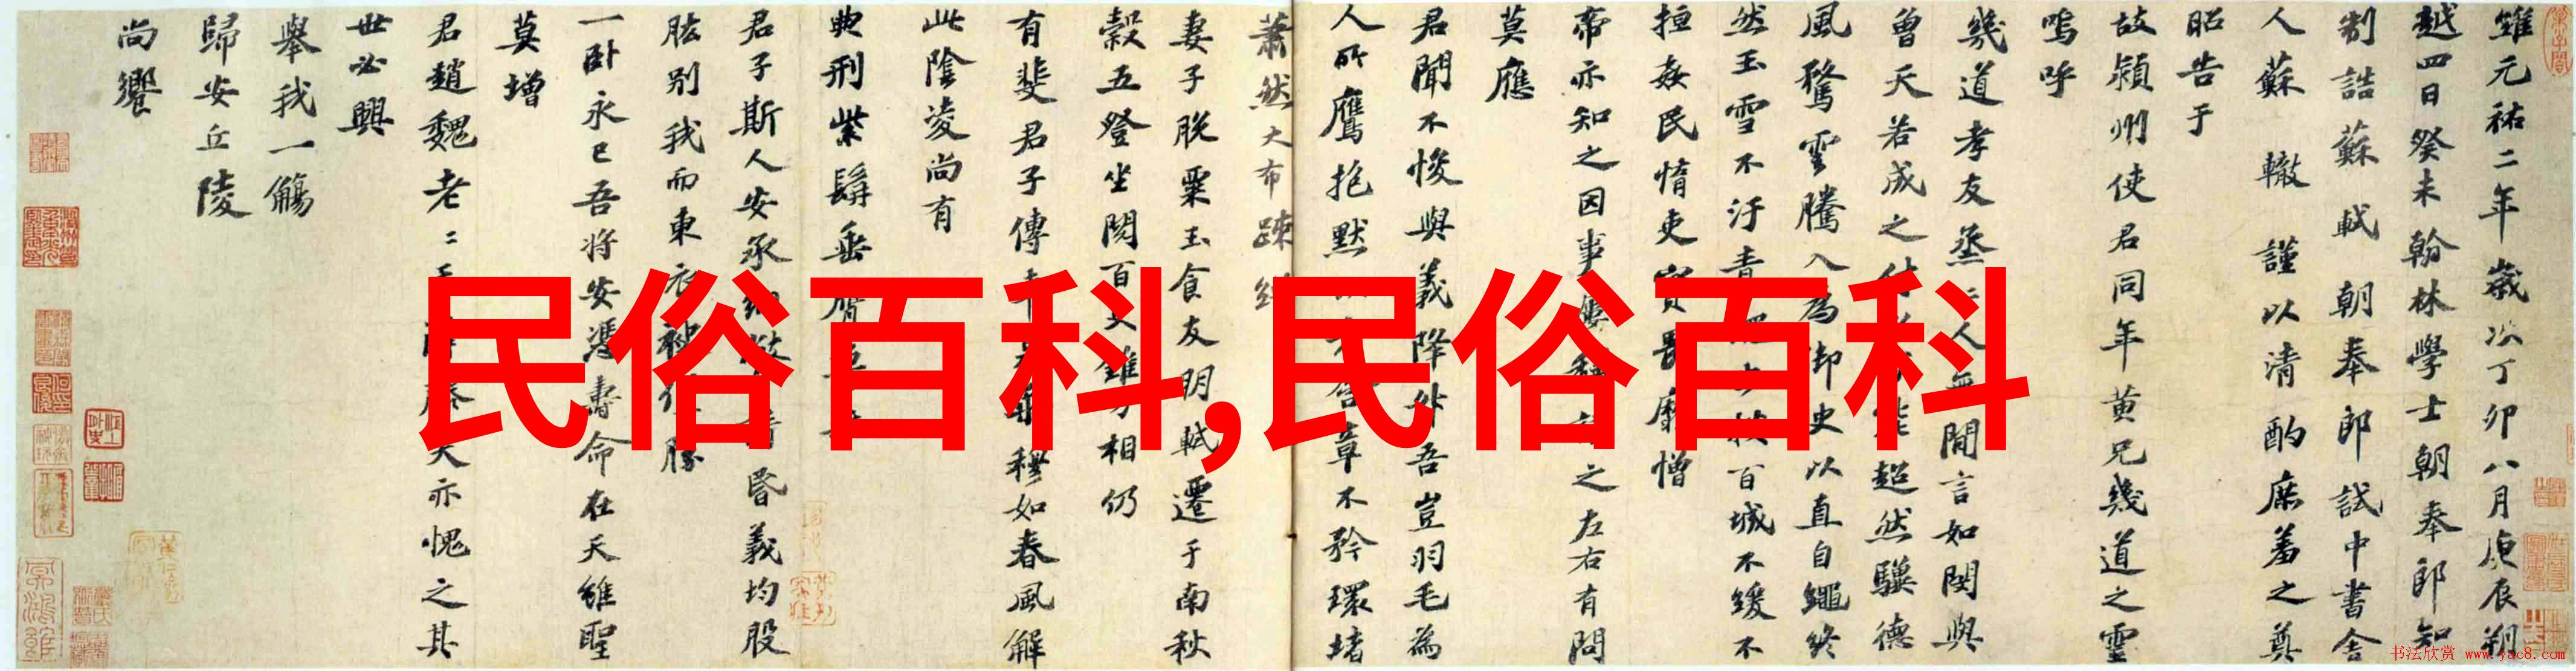 維元祐二年歲次丁卯八月庚辰朔
越四日癸未翰林學士朝奉郎知
制誥蘇軾朝奉郎試中書舍
人蘇轍謹以清酌庶羞之奠
昭告于
故潁州使君同年黃兄幾道之靈
嗚呼
幾道孝友烝〻人無間言如閔與
曾天若成之付以能超然驥德
風騖雲騰入為御史以直自繩終
然玉雪不汙青按百城不緩不
擅姦民惰吏實畏靡憎
帝亦知之因事屢稱之左右有問
莫應
君聞不悛與義降升吾豈羽毛為
人所鷹抱默含章不矜環堵
蕭然大布疎繒
妻子脫粟玉食友朋軾遷于南秋
穀五登坐閱百吏錐刀相仍
有斐君子傳車穆如春風解
此陰凌尚有
典刑紫髯垂膺
君子斯人安承納幣請昏義均股
肱別我而東衣袂僅勝
一臥永已吾將安憑壽命在天雖聖
莫增
君趙魏老〻于滕天亦愧之其
世必興
舉我一觴
歸安丘陵
尚饗
民俗百科,民俗百科
书法欣赏 www.yac8.com